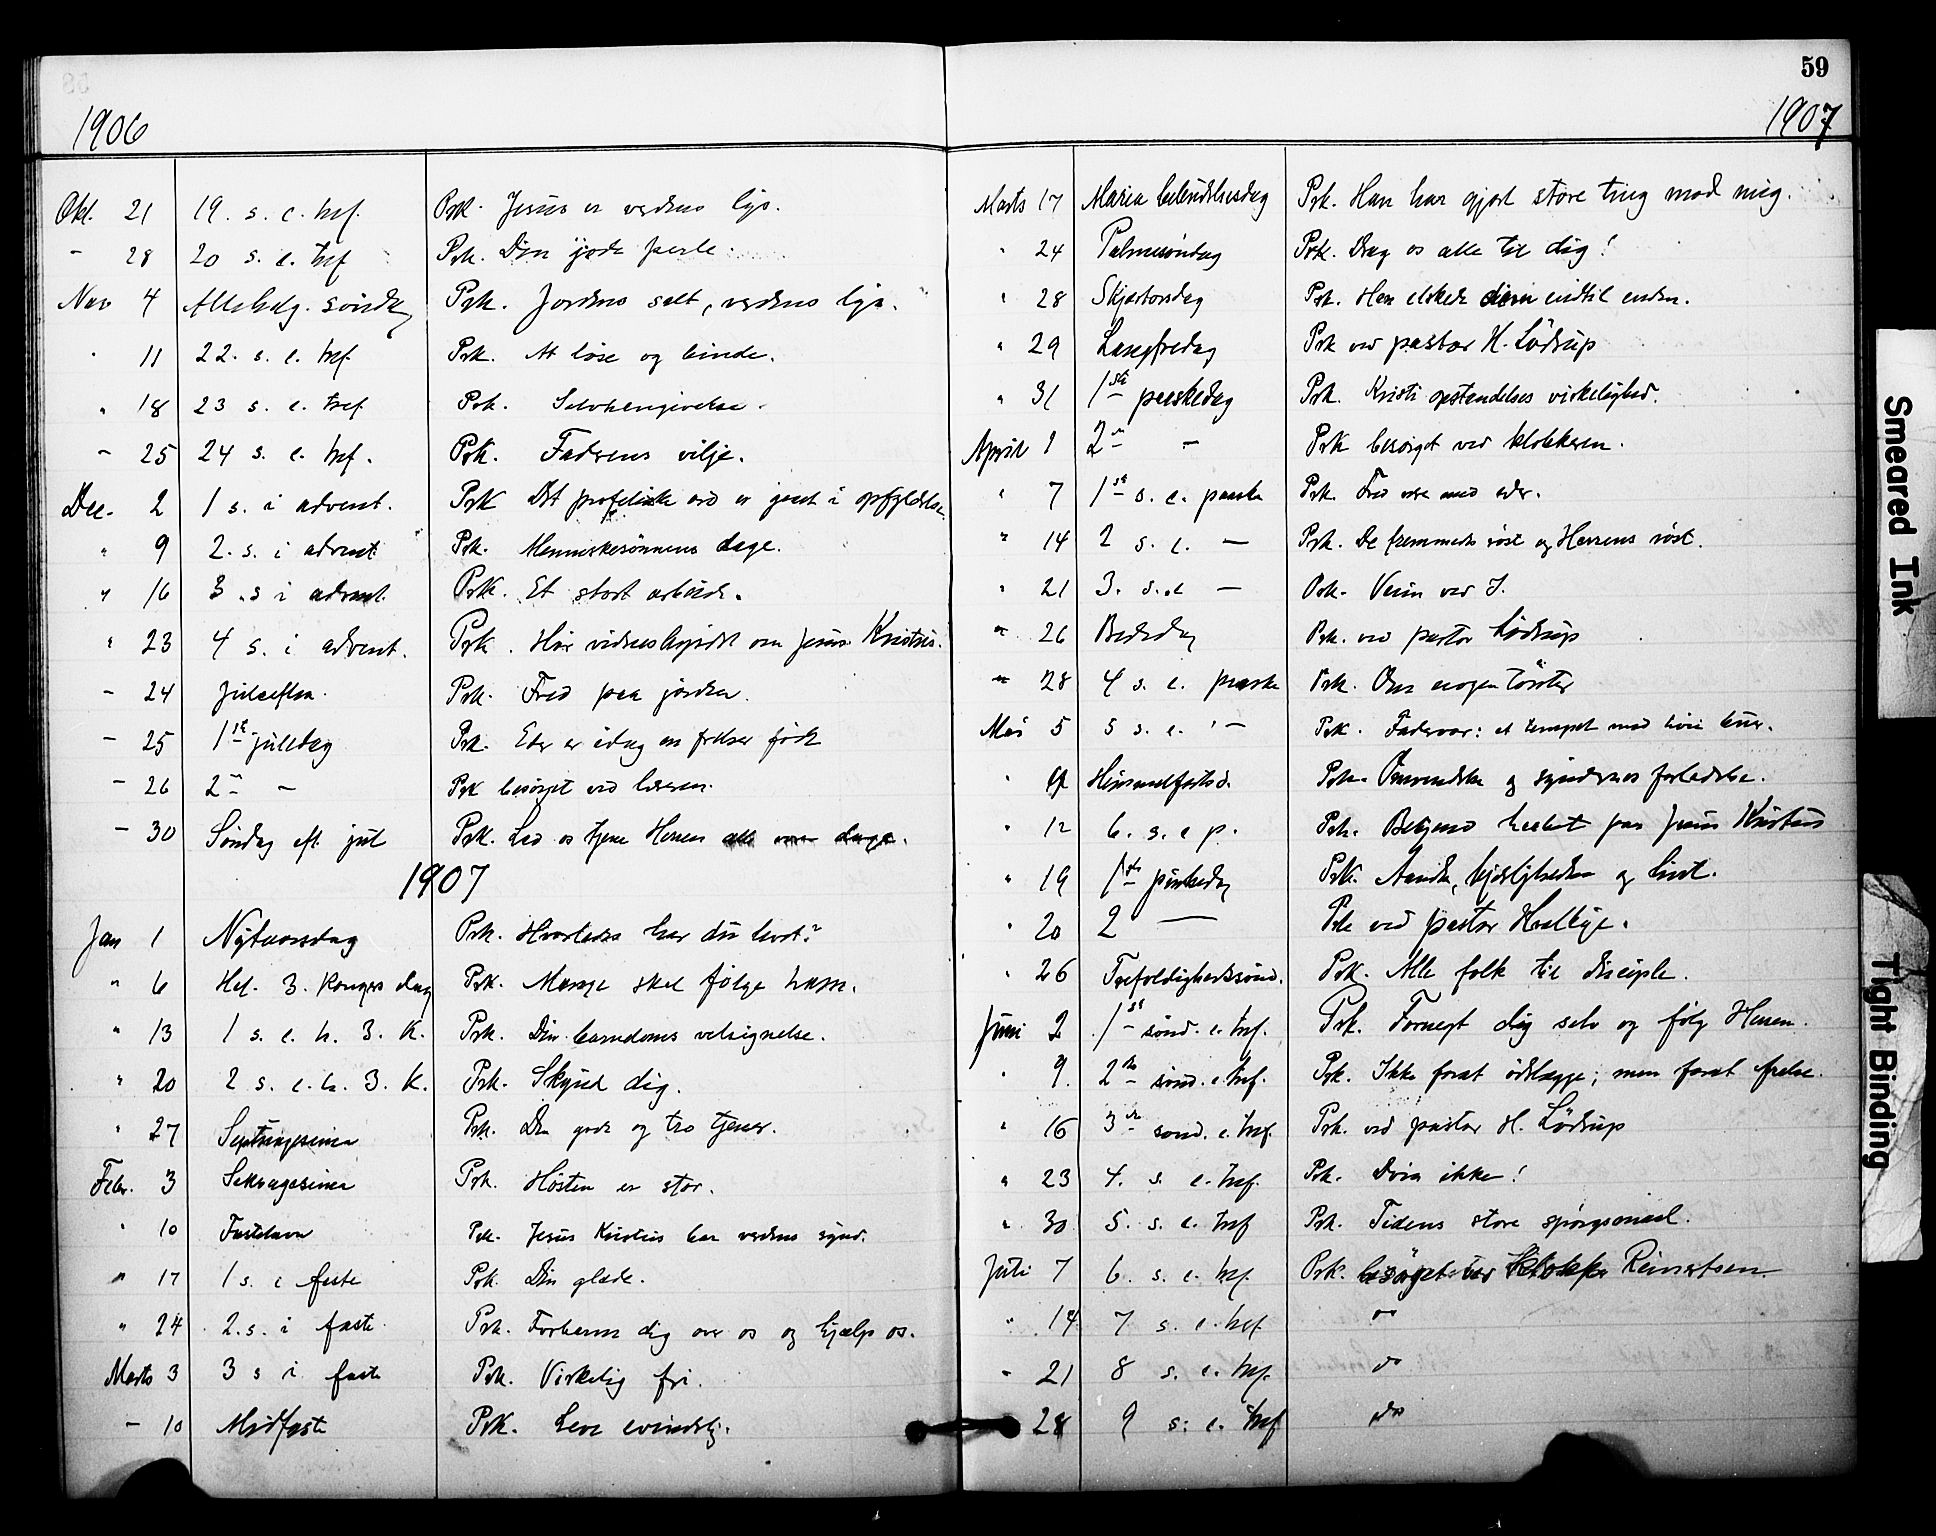 59
1906
Okt. 21 19. s. e. tref. Prk. Jesus er verdens lys.
- 28 20 s. e. tref Prk. Den gode perle.
Nov 4 Allehelg. söndag Prk. Jordens salt, verdens lys.
" 11 22. s. e. tref. Prk. At löse og binde.
" 18 23 s. e. tref. Prk. Selvhengivelse.
- 25 24 s. e. tref. Prk. Faderens vilje.
Dec. 2 1 s. i advent. Prk Det profetiske ord er gaaet i opfyldelse.
" 9 2. s. i advent Prk. Menneskesönnens dage.
" 16 3. s i advent. Prk. Et stort arbeide.
" 23 4 s. i advent. Prk. Hör vidnesbyrdet om Jesus Kristus.
- 24 Juleaften. Prk. Fred paa jorden.
- 25 1ste juledag Prk. Eder er idag en frelser födt
- 26 2den - Prk besörget ved læreren.
- 30 Söndag eft. jul Prk. Lad os tjene Herren alle vore dage.
1907
Jan 1 Nytaarsdag Prk. Hvorledes har du levet?
" 6 Hel. 3. Kongers dag Prk. Mange skal fölge ham.
" 13 1 s. e. h. 3. K. Prk. Din barndoms velsignelse.
" 20 2 s. e. h. 3. K. Prk. Skynd dig.
" 27 Septuagesima Prk. Den gode og tro tjener.
Febr. 3 Seksagesima Prk. Hösten er stor.
" 10 Fastelavn Prk. Jesus Kristus bar verdens synd.
" 17 1 s. i faste Prk. Din glæde.
" 24 2. s. i faste. Prk. Forbarm dig over os og hjælp os.
Marts 3 3 s i faste Prk. Virkelig fri.
- 10 Midfaste Prk. Leve evindelig.
1907
Marts 17 Maria bebudelsesdag Prk. Han har gjort store ting mod mig.
" 24 Palmesöndag Prk. Drag os alle til dig!
" 28 Skjærtorsdag Prk. Han elskede dem indtil enden.
" 29 Langfredag Prk ved pastor H. Lödrup
" 31 1ste paaskedag Prk. Kristi opstandelses virkelighed.
April 1 2den - Prk besörget ved klokkeren.
" 7 1ste s. e. paaske Prk. Fred være med eder.
" 14 2 s. e. - Prk. De fremmedes röst og Herrens röst.
" 21 3. s. e - Prk. Veien ved J.
" 26 Bededag Prk. ved pastor Lödrup
" 28 4 s. e. paaske Prk. Om nogen törster
Mai 5 5 s. e. - Prk. Fadervor: et tempel med höie buer.
" 9 Himmelfartsd. Prk. Omvendelse og syndernes forladelse.
" 12 6. s. e p. Prk. Bekjend herlet paa Jesus Kristus
" 19 1ste pinsedag Prk. Aanden, kjærligheden og livet.
" 20 2 - Prk ved pastor Hvalbye.
" 26 Trefoldighedssönd. Prk. Alle folk til disciple.
Juni 2 1ste sönd. e. tref. Prk. Fornegt dig selv og fölg Herren.
" 9. 2den sönd. e. tref. Prk. Ikke forat ödelægge; men forat frelse.
" 16 3die sönd. e. tref. Prk. ved pastor H. Lödrup
" 23 4. s. e. tref. Prk. Döm ikke!
" 30 5. s. e. tref Prk. Tidens store spörgsmaal.
Juli 7 6. s. e. tref. Prk. besörget ved klokker Reinertsen.
" 14 7 s. e. tref. do
- 21 8 s. e. tref. do
28 9 s. e. tref do
Smeared Ink
Tight Binding